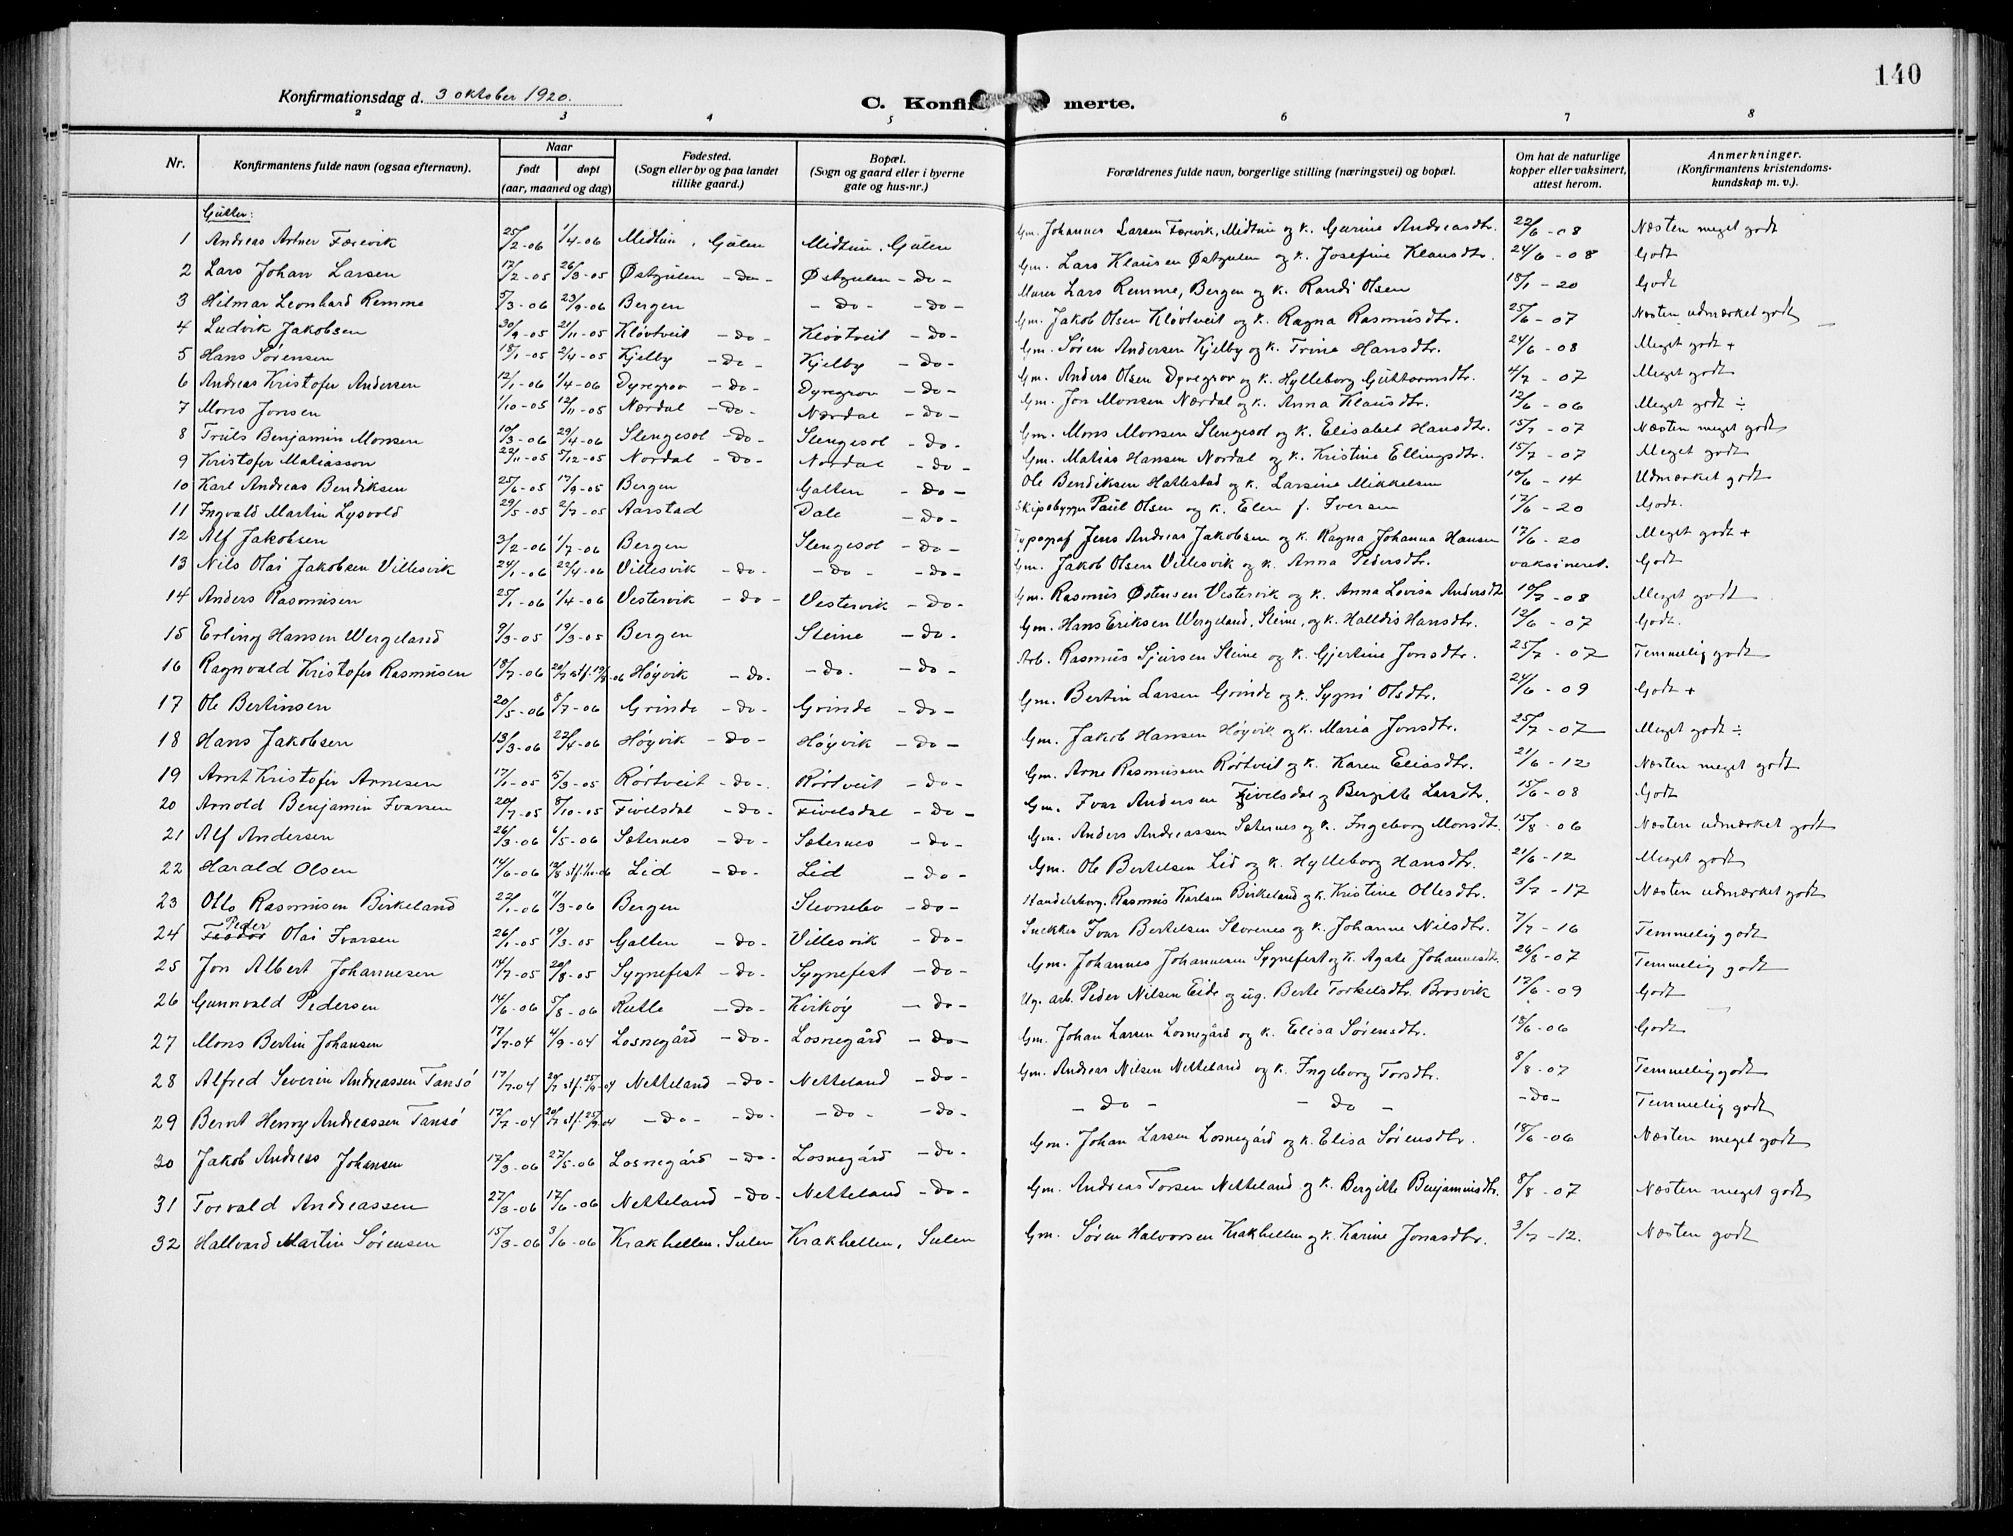 140
Konfirmationsdag d. 3 oktober 1920.
C. Konfir merte.
2 3 4 5 6 7 8
Nr. Konfirmantens fulde navn (ogsaa efternavn). Naar født døpt (aar, maaned og dag) Fødested. (Sogn eller by og paa landet tillike gaard.) Bopæl. (Sogn og gaard eller i byerne gate og hus-nr.) Forældrenes fulde navn, borgerlige stilling (næringsvei) og bopæl. Om hat de naturlige kopper eller vaksinert, attest herom. Anmerkninger. (Konfirmantens kristendomskundskap m. v.).
Gutter:
1 Andreas Artner Færevik 25/2-06 1/4-06 Midtun, Gulen Midtun, Gulen Gm. Johannes Larsen Færevik, Midtun og k. Gurine Andreasdtr. 22/6-08 Næsten meget godt
2 Lars Johan Larsen 17/2-05 26/3-05 Østgulen -do- Østgulen -do- Gm. Lars Klausen Østgulen og k. Josefine Klausdtr. 24/6-08 Godt
3 Hilmar Leonhard Remme 5/3-06 23/9-06 Bergen -do- -do- Murer Lars Remme, Bergen og k. Randi Olsen 18/1-20 Godt
4 Ludvik Jakobsen 30/9-05 21/11-05 Kløvtveit -do- Kløvtveit -do- Gm. Jakob Olsen Kløvtveit og k. Ragna Rasmusdtr. 25/6-07 Næsten udmærket godt
5 Hans Sørensen 18/1-05 2/4-05 Kjelby -do- Kjelby -do- Gm. Søren Andersen Kjelby og k. Trine Hansdtr. 24/6-08 Meget godt +
6 Andreas Kristofer Andersen 12/1-06 1/4-06 Dyregrov -do- Dyregrov -do- Gm. Anders Olsen Dyregrov og k. Hylleborg Guttormsdtr. 4/7-07 Meget godt
7 Mons Jonsen 1/10-05 12/11-05 Nærdal -do- Nærdal -do- Gm. Jon Monsen Nærdal og k. Anna Klausdtr. 12/6-06 Meget godt ÷
8 Truls Benjamin Monsen 10/3-06 29/4-06 Slengesol -do- Slengesol -do- Gm. Mons Monsen Slengesol og k. Elisabet Hansdtr. 15/7-07 Næsten meget godt
9 Kristofer Matiasson 22/11-05 5/12-05 Nordal -do- Nordal -do- Gm. Matias Hansen Nordal og k. Kristine Ellingsdtr. 15/7-07 Meget godt
10 Karl Andreas Bendiksen 25/6-05 17/9-05 Bergen Galten -do- Ole Bendiksen Hattestad og k. Larsine Mikkelsen 10/6-14 Udmærket godt
11 Ingvald Martin Lysvold 29/5-05 2/7-05 Aarstad Dale -do- Skipsbygger Paul Olsen og k. Elen f. Iversen 17/6-20 Godt.
12 Alf Jakobsen 3/2-06 1/7-06 Bergen Slengesol -do- Typograf Jens Andreas Jakobsen og k. Ragna Johanna Hansen 17/6-20 Meget godt +
13 Nils Olai Jakobsen Villesvik 24/1-06 22/4-06 Villesvik -do- -do- -do- Gm. Jakob Olsen Villesvik og k. Anna Pedersdtr. vaksineret. Godt
14 Anders Rasmusen 25/1-06 1/4-06 Vestervik -do- Vestervik -do- Gm. Rasmus Østensen Vestervik og k. Anna Lovisa Andersdtr 10/7-08 Meget godt
15 Erling Hansen Wergeland 9/3-05 19/3-05 Bergen Steine -do- Gm. Hans Eriksen Wergeland, Steine, og k. Halldis Hansdtr. 12/6-07 Godt.
16 Ragnvald Kristofer Rasmusen 18/7-06 20/7 stf. 19/8-06 Høyvik -do- -do- -do- Arb. Rasmus Sjursen Steine og k. Gjertine Jonsdtr. 25/7-07 Temmelig godt
17 Ole Bertinsen 20/5-06 8/7-06 Grinde -do- Grinde -do- Gm. Bertin Larsen Grinde og k. Sygni Olsdtr. 24/6-09 Godt +
18 Hans Jakobsen 13/3-06 22/4-06 Høyvik -do- Høyvik -do- Gm. Jakob Hansen Høyvik og k. Maria Jonsdtr. 25/7-07 Meget godt ÷
19 Arnt Kristofer Arnesen 17/1-05 5/3-05 Rørtveit -do- Rørtveit -do- Gm. Arne Rasmussen Rørtveit og k. Karen Eliasdtr. 21/6-12 Næsten meget godt
20 Arnold Benjamin Ivarsen 20/7-05 8/10-05 Fivelsdal -do- Fivelsdal -do- Gm. Ivar Andersen Fivelsdal og Bergitte Larsdtr. 15/6-08 Godt
21 Alf Andersen 26/3-06 6/5-06 Sæternes -do- Sæternes -do- Gm. Anders Andreassen Sæternes og k. Ingeborg Monsdtr. 15/8-06 Næsten udmærket godt
22 Harald Olsen 14/6-06 Lid -do- Lid -do- Gm. Ole Bertelsen Lid og k. Hylleborg Hansdtr. 21/6-12 Meget godt
23 Otto Rasmusen Birkeland 22/1-06 11/3-06 Bergen Stevnebø -do- Handelsborg. Rasmus Karlsen Birkeland og k. Kristine Ottesdtr. 3/7-17 Næsten udmærket godt
24 Peder Olai Ivarsen 26/1-05 19/3-05 Galten -do- Villesvik -do- Snekker Ivar Bertelsen Storenes og k. Johanne Nilsdtr. 7/7-16 Temmelig godt
25 Jon Albert Johannesen 14/7-05 20/8-05 Sygnefest -do- Sygnefest -do- Gm. Johannes Johannesen Sygnefest og k. Agate Johannesdtr. 26/8-07 Temmelig godt
26 Gunnvald Pedersen 14/6-06 5/8-06 Rutle -do- Kirkøy -do- Ug. arb. Peder Nilsen Eide og ug. Berte Torkelsdtr. Brosvik 17/6-09 Godt
27 Mons Bertin Johansen 17/7-04 4/9-04 Losnegård -do- Losnegård -do- Gm. Johan Larsen Losnegård og k. Elisa Sørensdtr. 18/6-06 Godt
28 Alfred Severin Andreassen Tansø 17/7-04 20/7 stf. 25/9-04 Netteland -do- Netteland -do- Gm. Andreas Nilsen Netteland og k. Ingeborg Torsdtr. 8/8-07 Temmelig godt
29 Bernt Henry Andreassen Tansø 17/7-04 20/7 stf. 25/9-04 -do- -do- -do- -do- -do- -do- -do- Temmelig godt
30 Jakob Andreas Johansen 17/3-06 27/5-06 Losnegård -do- Losnegård -do- Gm. Johan Larsen Losnegård og k. Elisa Sørensdtr. 18/6-06 Næsten meget godt
31 Torvald Andreassen 27/3-06 17/6-06 Netteland -do- Netteland -do- Gm. Andreas Torsen Netteland og k. Bergitte Benjaminsdtr. 8/8-07 Næsten meget godt
32 Hallvard Martin Sørensen 15/3-06 3/6-06 Krakhellen, Sulen Krakhellen, Sulen Gm. Søren Halvorsen Krakhellen og k. Karine Jonasdtr. 3/7-12. Næsten godt